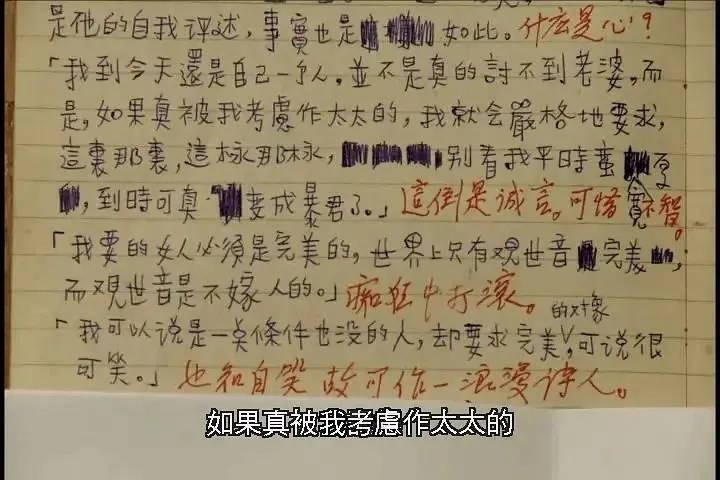 是他的自我评述，事實也是如此。什么是心？
「我到今天還是自己一个人，並不是真的討不到老婆，而
是，如果真被我考慮作太太的，我就会嚴格地要求，
這裏那裏，這樣那樣，别看我平時蛮
，到時可真变成暴君了。」這倒是诚言。可惜不智。
「我要的女人必須是完美的，世界上只有观世音完美，
而观世音是不嫁人的。」痴狂中打滾。
「我可以说是一类條件也没的人，却要求完美的対像，可说很
可笑。」也知自笑 故可作一浪漫诗人。
如果真被我考慮作太太的